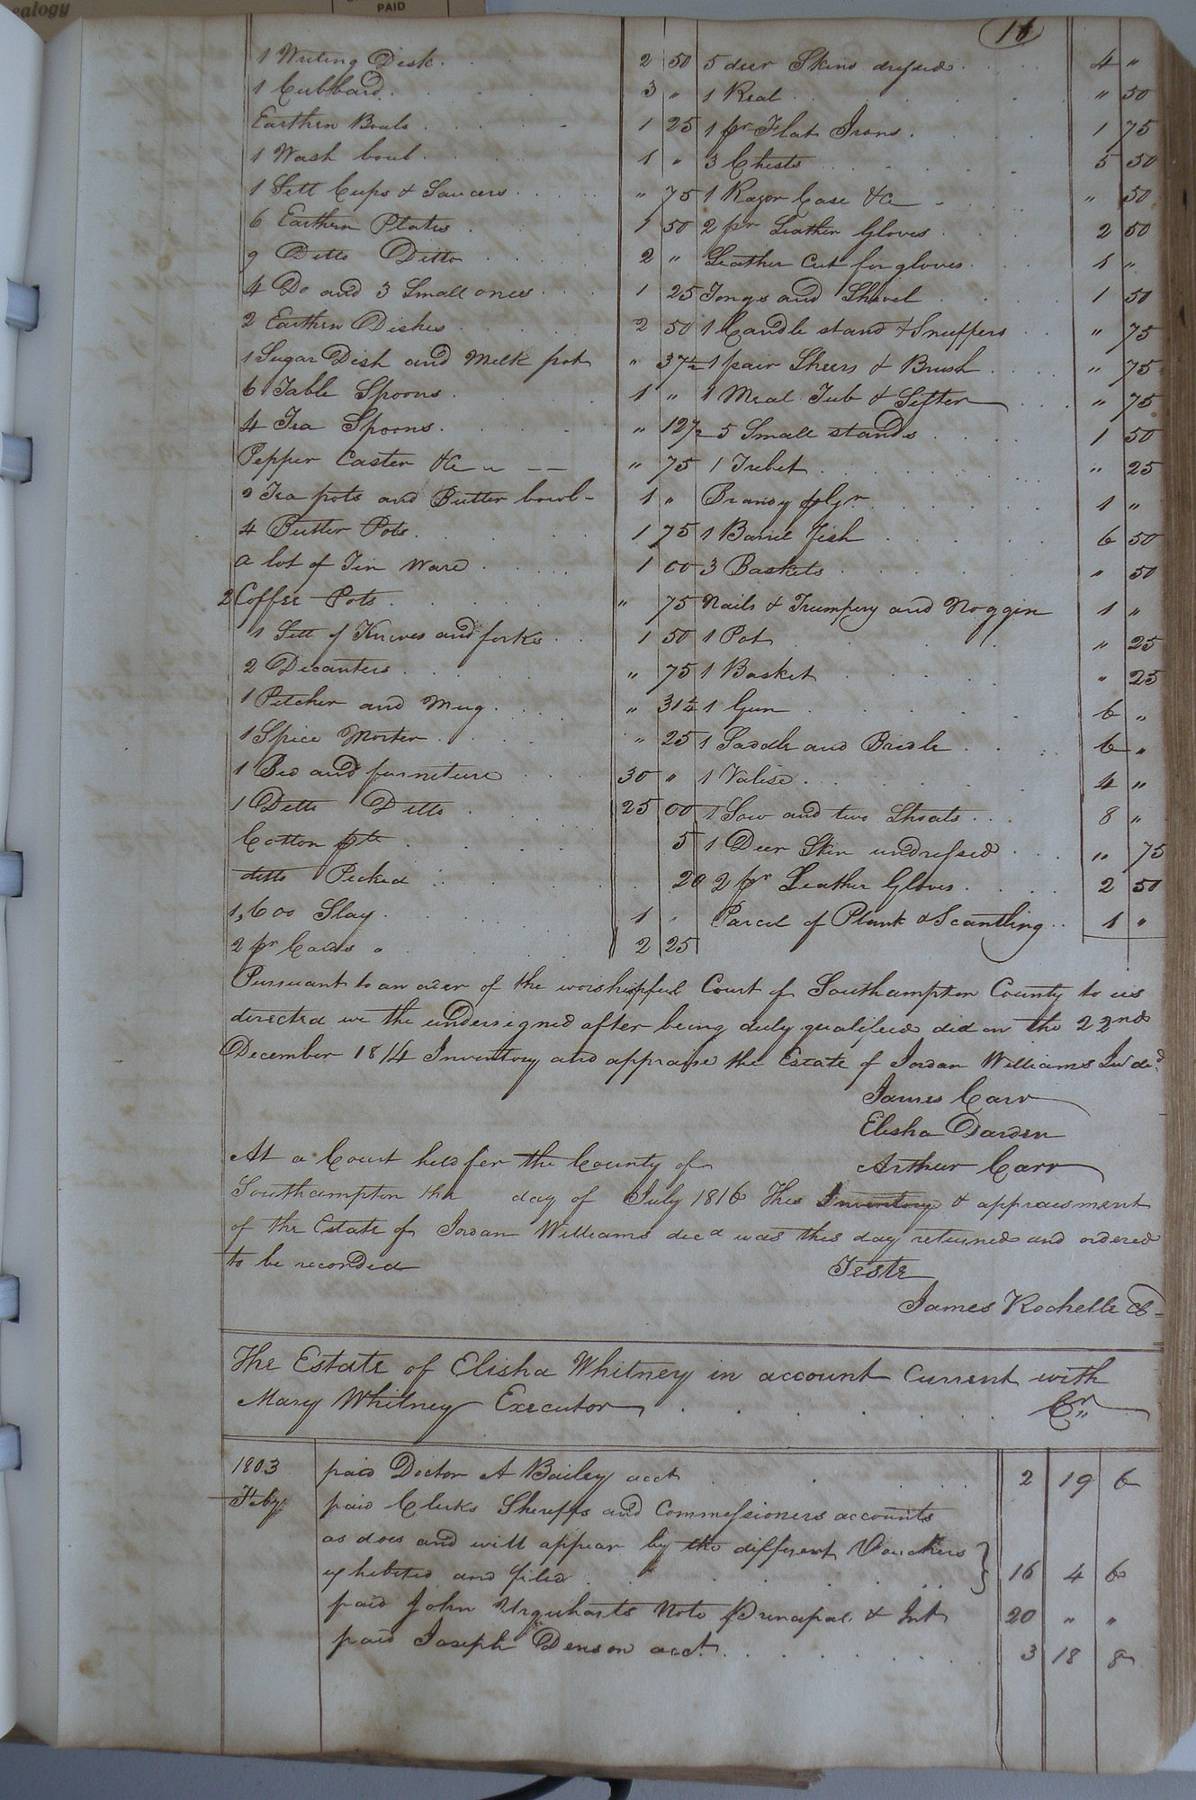 ealogy
PAID
18
1 Writing Disk 2 50
1 Cubbard 3 "
Earthen Bouls 1 25
1 Wash boul 1 "
1 Sett Cups & Saucers " 75
6 Earthen Plates 1 50
9 Ditto Ditto 2 "
4 Do and 3 Small ones 1 25
2 Earthen Dishes 2 50
1 Sugar Dish and Milk pot " 37½
6 Table Spoons 1 "
4 Tea Spoons " 12½
Pepper Caster &c " 75
2 Tea pots and Butter bowl 1 "
4 Butter Pots 1 75
a lot of Tin Ware 1 00
2 Coffee Pots " 75
1 Sett of Knives and forks 1 50
2 Decanters " 75
1 Pitcher and Mug " 31¼
1 Spice Morter " 25
1 Bed and furneture 30 "
1 Ditto Ditto 25 00
Cotton 5
ditto Picked 20
1,600 Slay 1 "
2 pr Cards 2 25
5 deer Skins dressed 4 "
1 Real " 50
1 pr Flat Irons 1 75
3 Chests 5 50
1 Razor Case &c " 50
2 pr Leather Gloves 2 50
Leather Cut for gloves 1 "
Tongs and Shovel 1 50
1 Candle stand & Snuffers " 75
1 pair Sheers & Brush " 75
1 Meal Tub & Sifter " 75
5 Small stands 1 50
1 Trebet " 25
Brandy 1 "
1 Barrel fish 6 50
3 Baskets " 50
Nails & Trumpery and Noggin 1 "
1 Pot " 25
1 Basket " 25
1 Gun 6 "
1 Saddle and Bridle 6 "
1 Valise 4 "
1 Sow and two Shoats 8 "
1 Deer Skin undressed " 75
2 pr Leather Gloves 2 50
Parcel of Plank & Scantling 1 "
Pursuant to an order of the worshipful Court of Southampton County to us
directed we the undersigned after being duly qualified did on the 22nd
December 1814 Inventory and appraise the Estate of Jordan Williams decd
James Carr
Elisha Darden
Arthur Carr
At a Court held for the County of
Southampton the day of July 1816 This Inventory & appraisment
of the Estate of Jordan Williams decd was this day returned and ordered
to be recorded
Teste
James Rochelle
The Estate of Elisha Whitney in account Current with
Mary Whitney Executor Cr
1803 paid Doctor A Bailey acct 2 19 6
Feby paid Clerks Sheriffs and Commessioners accounts
as does and will appear by the different Vouchers
exhibited and filed 16 4 6
paid John Urquharts Note Principal & Int 20 " "
paid Joseph Denson acct 3 18 8